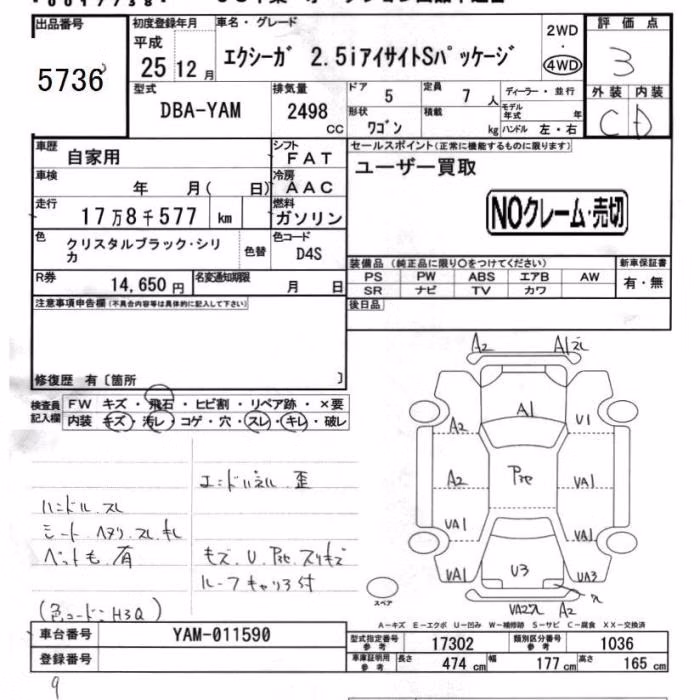 出品番号 初度登録年月 車名・グレード 評価点
5736 平成 25 12月 エクシーガ 2.5iアイサイトSパッケージ 2WD・4WD 3
型式 DBA-YAM 排気量 2498 CC ドア 5 定員 7人 ディーラー・並行 外装 内装
形状 ワゴン 積載 kg モデル年式 年 ハンドル 左・右 C D
車歴 自家用 シフト FAT セールスポイント(正常に機能するものに限ります)
車検 年 月( 日) 冷房 AAC ユーザー買取
走行 17万8千577 km 燃料 ガソリン NOクレーム・売切
色 クリスタルブラック・シリカ 色替 色コード D4S
装備品 (純正品に限り〇をつけてください) 新車保証書
R券 14,650円 名変通知期限 月 日 PS PW ABS エアB AW 有・無
SR ナビ TV カワ
注意事項申告欄(不具合内容等は具体的に記入して下さい) 後日品
修復歴 有〔箇所 〕
検査員記入欄 FW キズ・飛石・ヒビ割・リペア跡・×要
内装 キズ・汚レ・コゲ・穴・スレ・キレ・破レ
A2 A1
A1
A2 U1
A2 UA1
UA1 UA1
UA1 U3 UA3
UA2 A2
エンドパネル 歪
ハンドル スレ
シート ヘタリ スレ キレ
ペットも 有
キズ、U
ルーフキャリア付
(色コード:H3Q)
スペア
A-キズ E-エクボ U-凹み W-補修跡 S-サビ C-腐食 XX-交換済
車台番号 YAM-011590 型式指定番号 参考 17302 類別区分番号 参考 1036
登録番号 車庫証明用 参考 長さ 474cm 幅 177cm 高さ 165cm
9